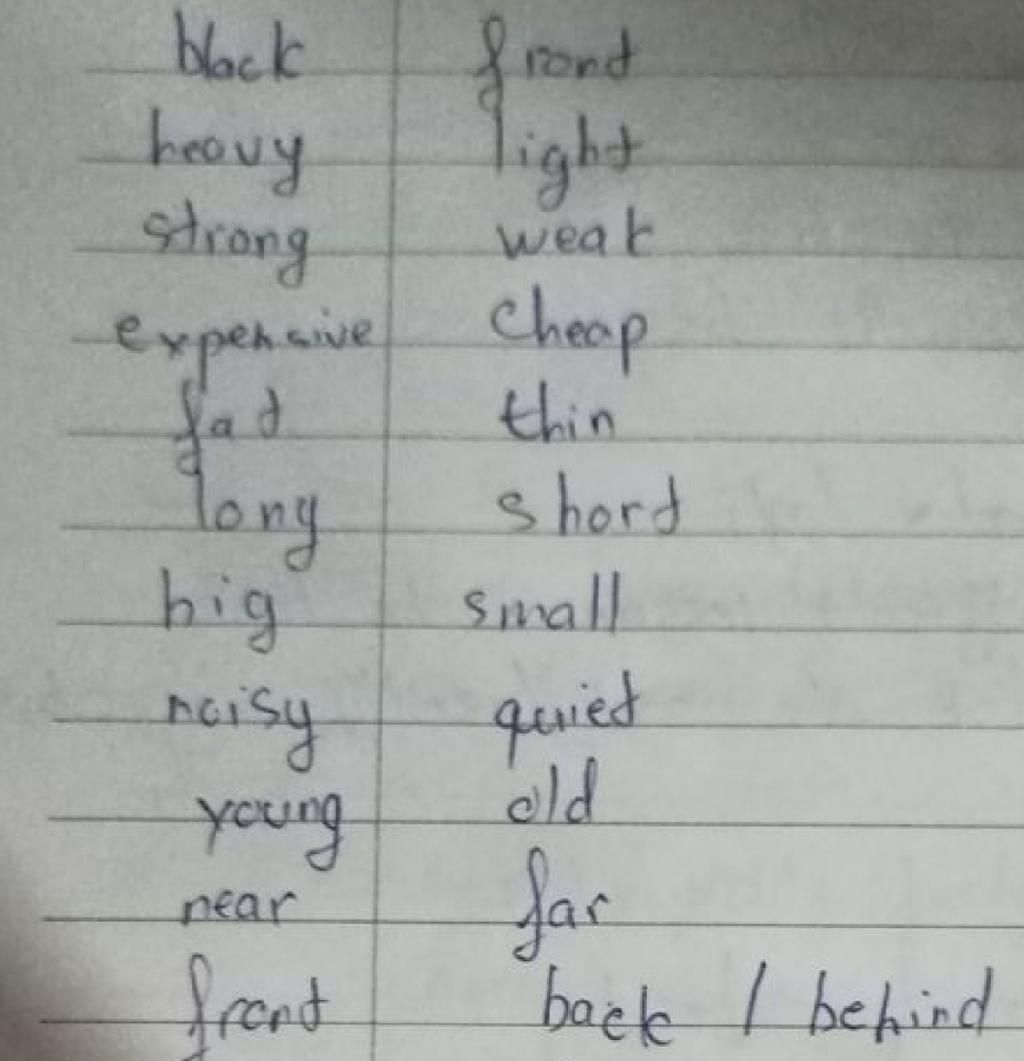 black front
heavy light
strong weak
expensive cheap
fat thin
long short
big small
noisy quiet
young old
near far
front back / behind